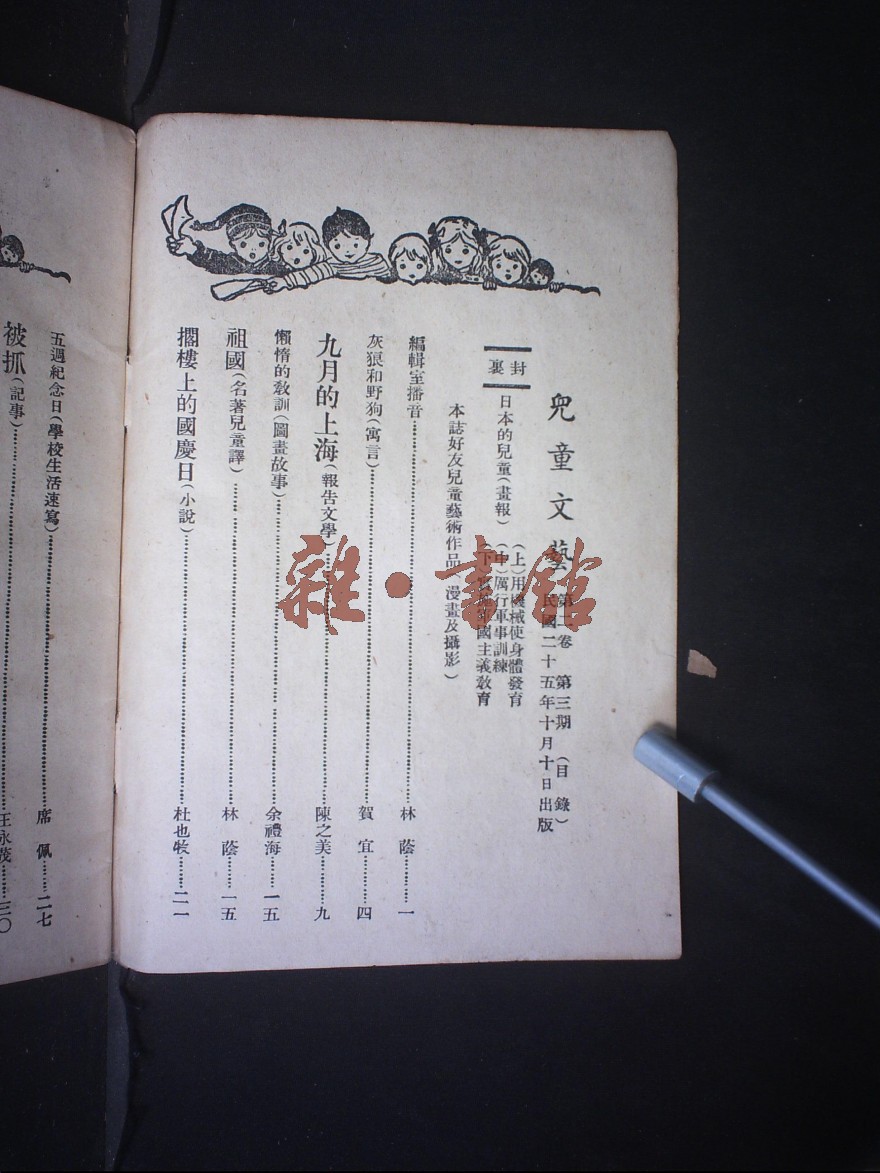 兒童文藝
第二卷 第三期 (目錄)
民國二十五年十月十日出版
封裏
日本的兒童(畫報)
(上)用機械使身體發育
(中)厲行軍事訓練
(下)國主義教育
本誌好友兒童藝術作品(漫畫及攝影)
編輯室播音……林蔭……一
灰狼和野狗(寓言)……賀宜……四
九月的上海(報告文學)……陳之美……九
懶惰的教訓(圖畫故事)……余禮海……一五
祖國(名著兒童譯)……林蔭……一五
擱樓上的國慶日(小說)……杜也牧……二一
五週紀念日(學校生活速寫)……席佩……二七
被抓(記事)……王永茂……三〇
雜·書館